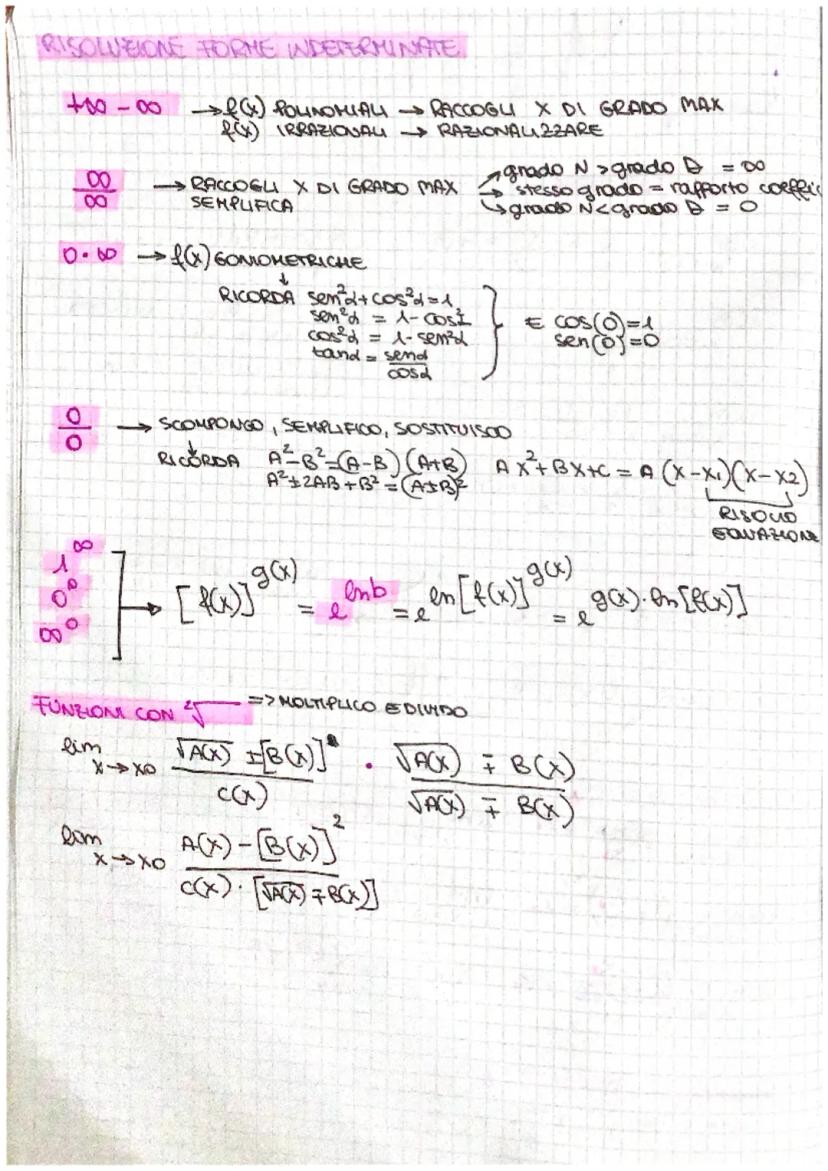 RISOLUZIONE FORME INDETERMINATE
+∞ - ∞ → f(x) POLINOMIALI → RACCOGLI X DI GRADO MAX
f(x) IRRAZIONALI → RAZIONALIZZARE
∞/∞ → RACCOGLI X DI GRADO MAX
SEMPLIFICA
↗ grado N > grado D = ∞
→ stesso grado = rapporto coeffic
↘ grado N < grado D = 0
0·∞ → f(x) GONIOMETRICHE
↓
RICORDA sen²α + cos²α = 1
sen²α = 1 - cos²
cos²α = 1 - sen²α
tanα = senα/cosα
} E cos(0)=1
sen(0)=0
0/0 → SCOMPONGO, SEMPLIFICO, SOSTITUISCO
↓
RICORDA A²-B²=(A-B)(A+B) AX²+BX+C = A(X-X1)(X-X2)
A²±2AB+B²=(A±B)²
RISOLVO
EQUAZIONE
1^∞
0^0
∞^0
] → [f(x)]^g(x) = e^lnb = e^ln[f(x)]^g(x) = e^g(x)·ln[f(x)]
FUNZIONI CON ²√ => MOLTIPLICO E DIVIDO
lim x→x0 (√A(x) ± [B(x)])/C(x) · (√A(x) ∓ B(x))/(√A(x) ∓ B(x))
lim x→x0 (A(x) - [B(x)]²)/(C(x)·[√A(x) ∓ B(x)])